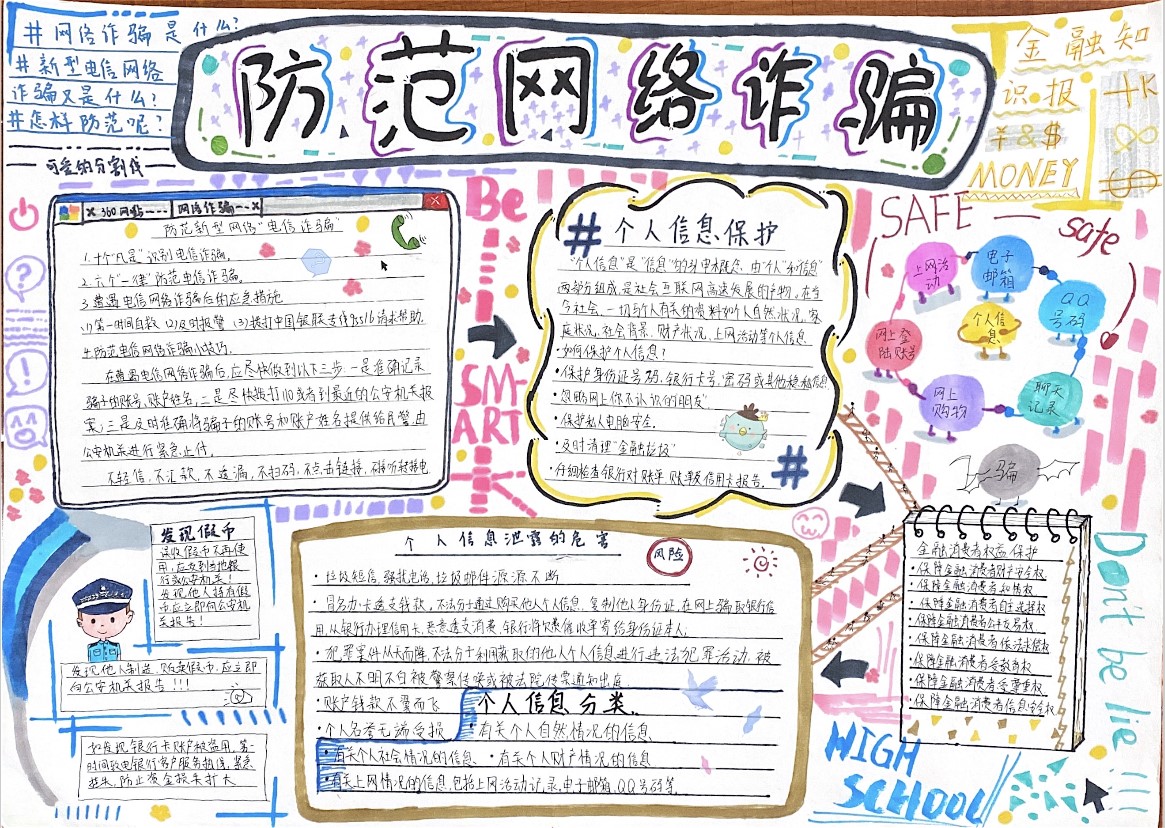 #网络诈骗是什么?
#新型电信网络
诈骗又是什么?
#怎样防范呢?
可爱的分割线
防范网络诈骗
金融知
识报
¥&$
MONEY
网络诈骗
防范新型网络"电信诈骗"
1.十个"凡是"识别电信诈骗。
2.六个"一律"防范电信诈骗。
3.遭遇电信网络诈骗后的应急措施
(1)第一时间自救 (2)及时报警 (3)拨打中国银联专线95516请求帮助.
4.防范电信网络诈骗小技巧.
在遭遇电信网络诈骗后,应尽快做到以下三步:一是准确记录
骗子的账号、账户姓名;二是尽快拨打110或者到最近的公安机关报
案;三是及时准确将骗子的账号和账户姓名提供给民警,由
公安机关进行紧急止付.
不轻信,不汇款,不透漏,不扫码,不点击链接,不接听转接电
Be
SM-
ART
#个人信息保护
"个人信息"是"信息"的
两部分组成,是社会互联网高速发展的产物。在当
今社会,一切与个人有关的资料如个人自然状况,家
庭状况,社会背景,财产状况,上网活动等个人信息.
·如何保护个人信息?
·保护身份证号码,银行卡号,密码或其他隐私信息
·忽略网上你不认识的"朋友".
·保护私人电脑安全.
·及时清理"金融垃圾"
·仔细检查银行对账单
#
SAFE — safe
上网活动
电子邮箱
QQ号码
个人信息
网上登陆账号
网上购物
聊天记录
骗
发现假币
误收假币不再使
用,应交到当地银
行或公安机关!
发现他人持有假
币应立即向公安机
关报告!
发现他人制造、贩卖假币,应立即
向公安机关报告!!!
如发现银行卡账户被盗用,第一
时间致电银行客户服务热线,紧急
挂失,防止资金损失扩大
个人信息泄露的危害
风险
·垃圾短信,骚扰电话,垃圾邮件源源不断
·冒名办卡透支钱款,不法分子通过购买他人个人信息,复制他人身份证,在网上骗取银行信
用,从银行办理信用卡,恶意透支消费,银行将欠费催收单寄给身份证本人;
·犯罪案件从天而降,不法分子利用获取的他人个人信息进行违法犯罪活动,被
获取人不明不白被警察传唤或被法院传票通知出庭.
·账户钱款不翼而飞
·个人名誉无端受损
个人信息分类.
·有关个人自然情况的信息
·有关个人社会情况的信息 ·有关个人财产情况的信息
·有关上网情况的信息,包括上网活动记录,电子邮箱,QQ号码等.
金融消费者权益保护
·保障金融消费者财产安全权
·保障金融消费者知情权
·保障金融消费者自主选择权
·保障金融消费者公平交易权
·保障金融消费者依法求偿权
·保障金融消费者受教育权
·保障金融消费者受尊重权
·保障金融消费者信息安全权
Don't be lie
HIGH
SCHOOL